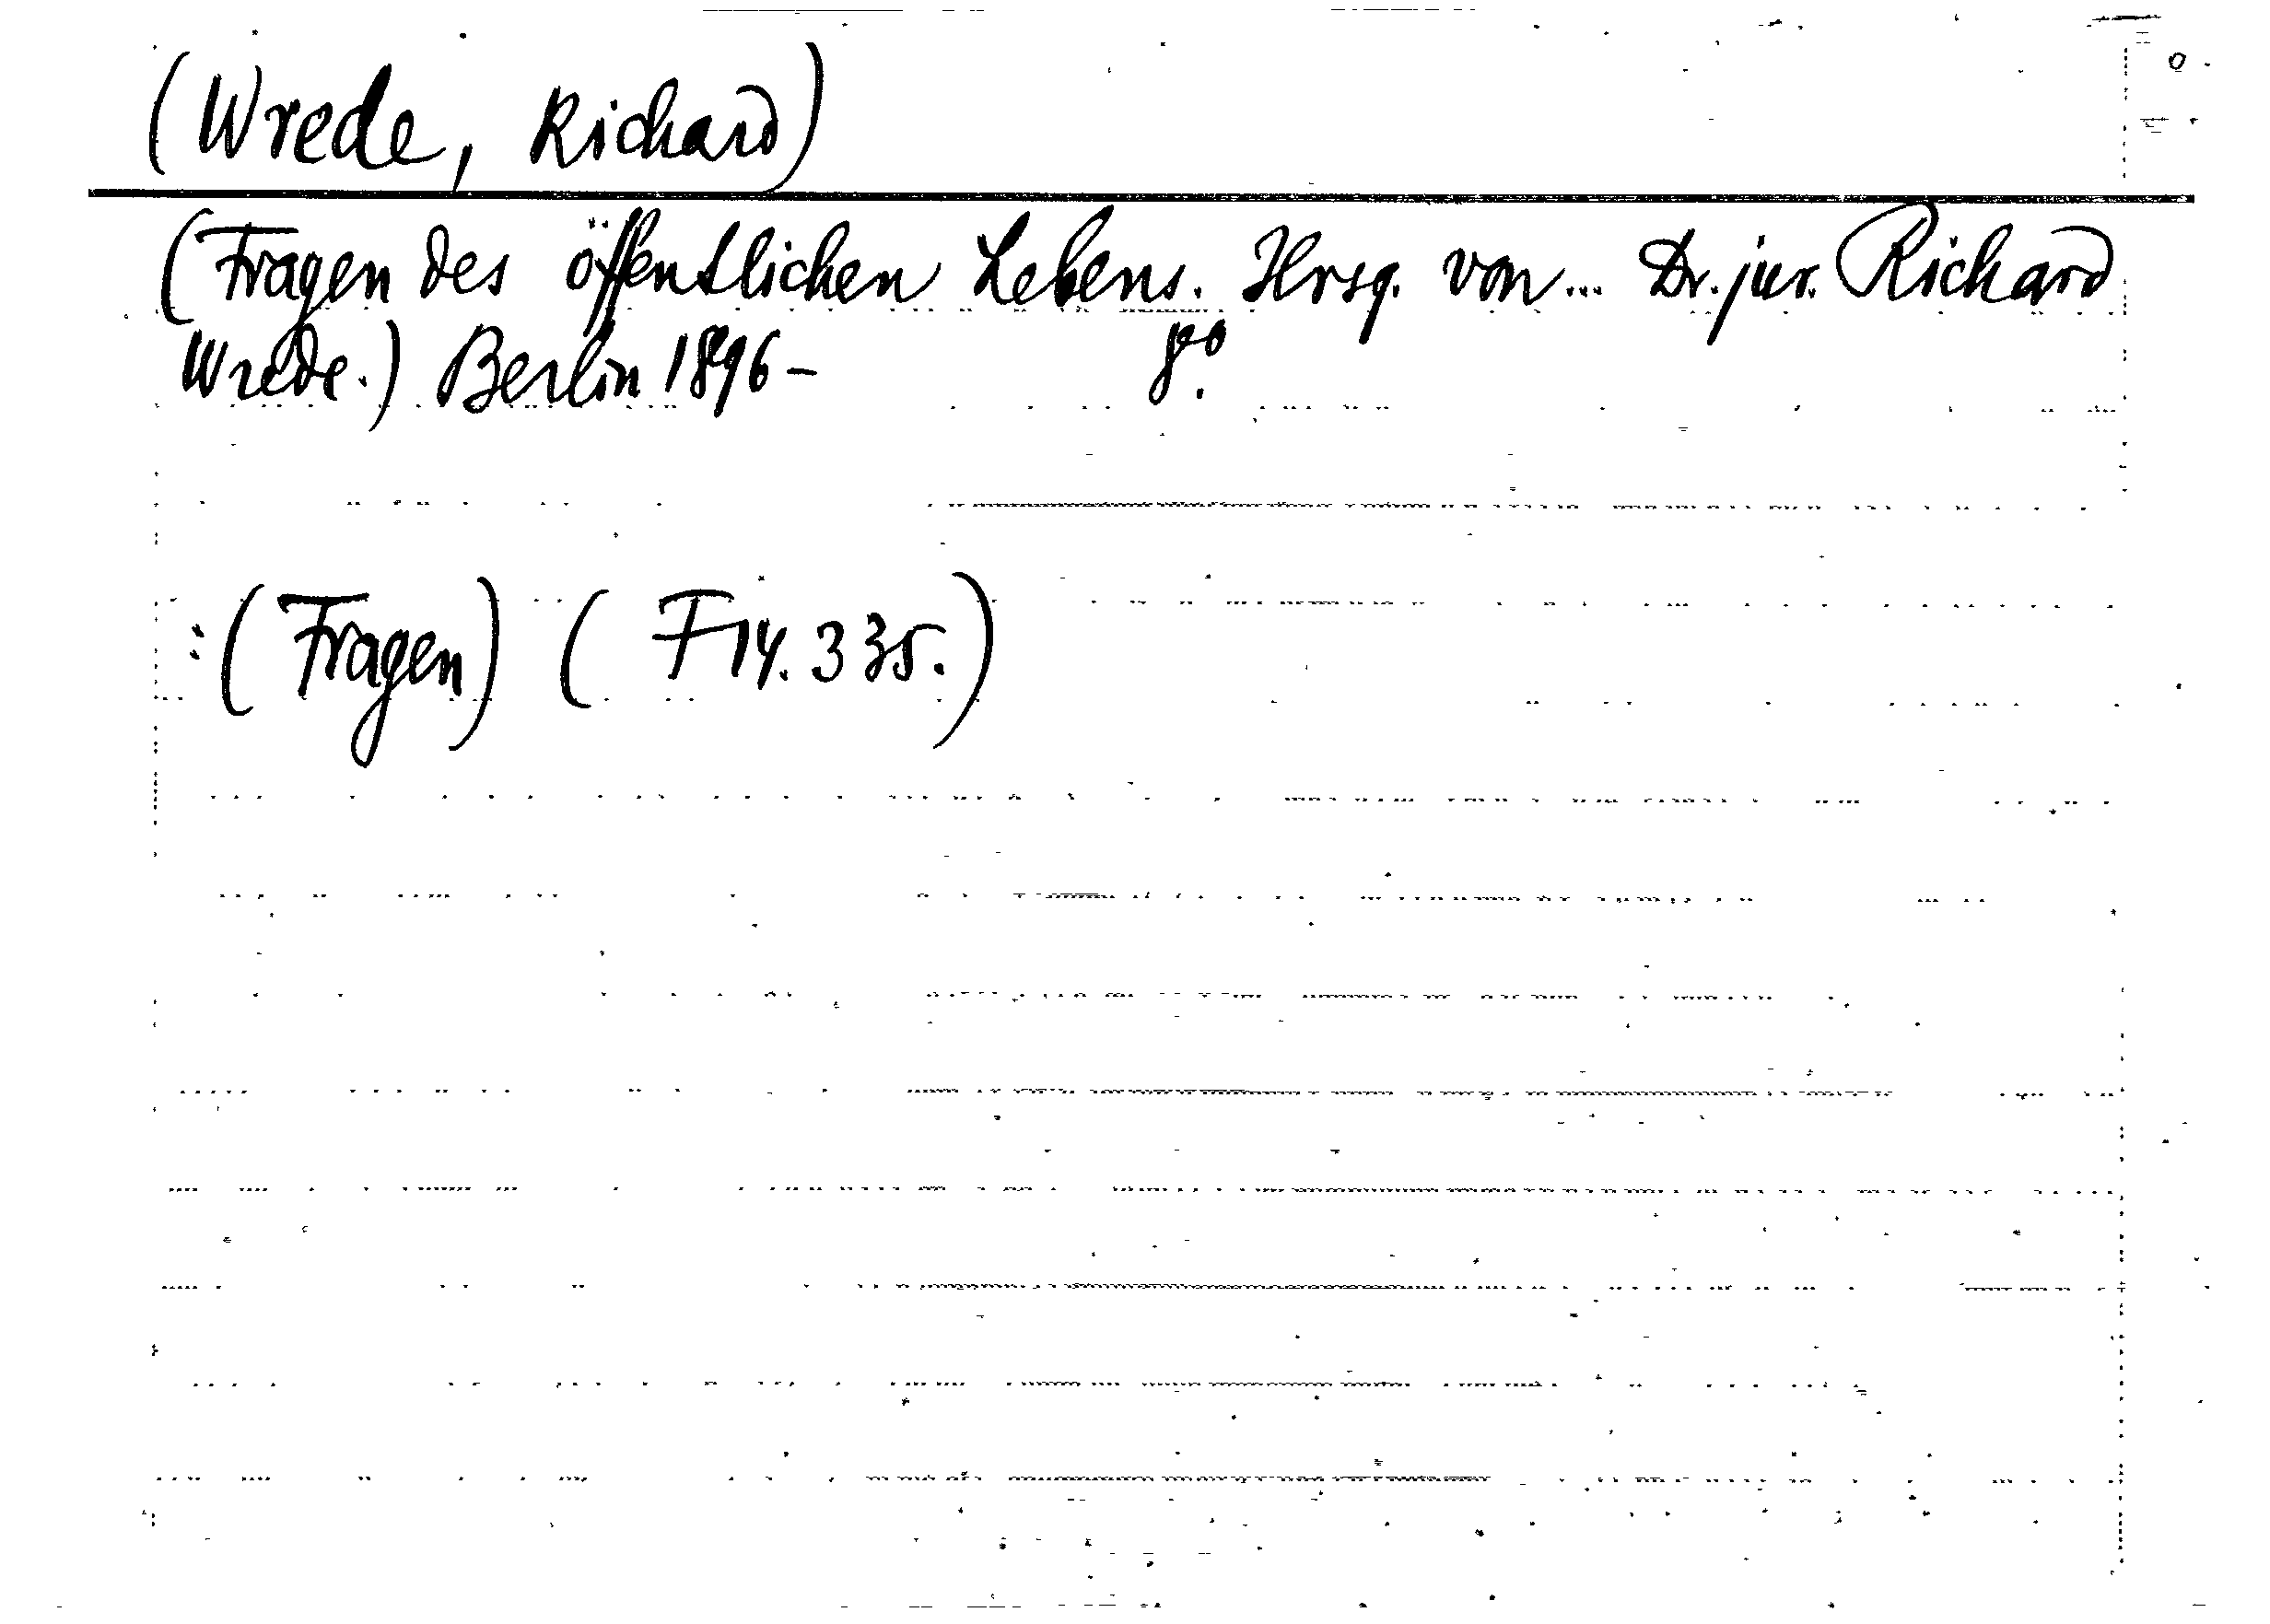 (Wrede, Richard)
(Fragen des öffentlichen Lebens. Hrsg. von... Dr. jur. Richard
Wrede.) Berlin 1896- 8º.
:(Fragen) (F14.335.)